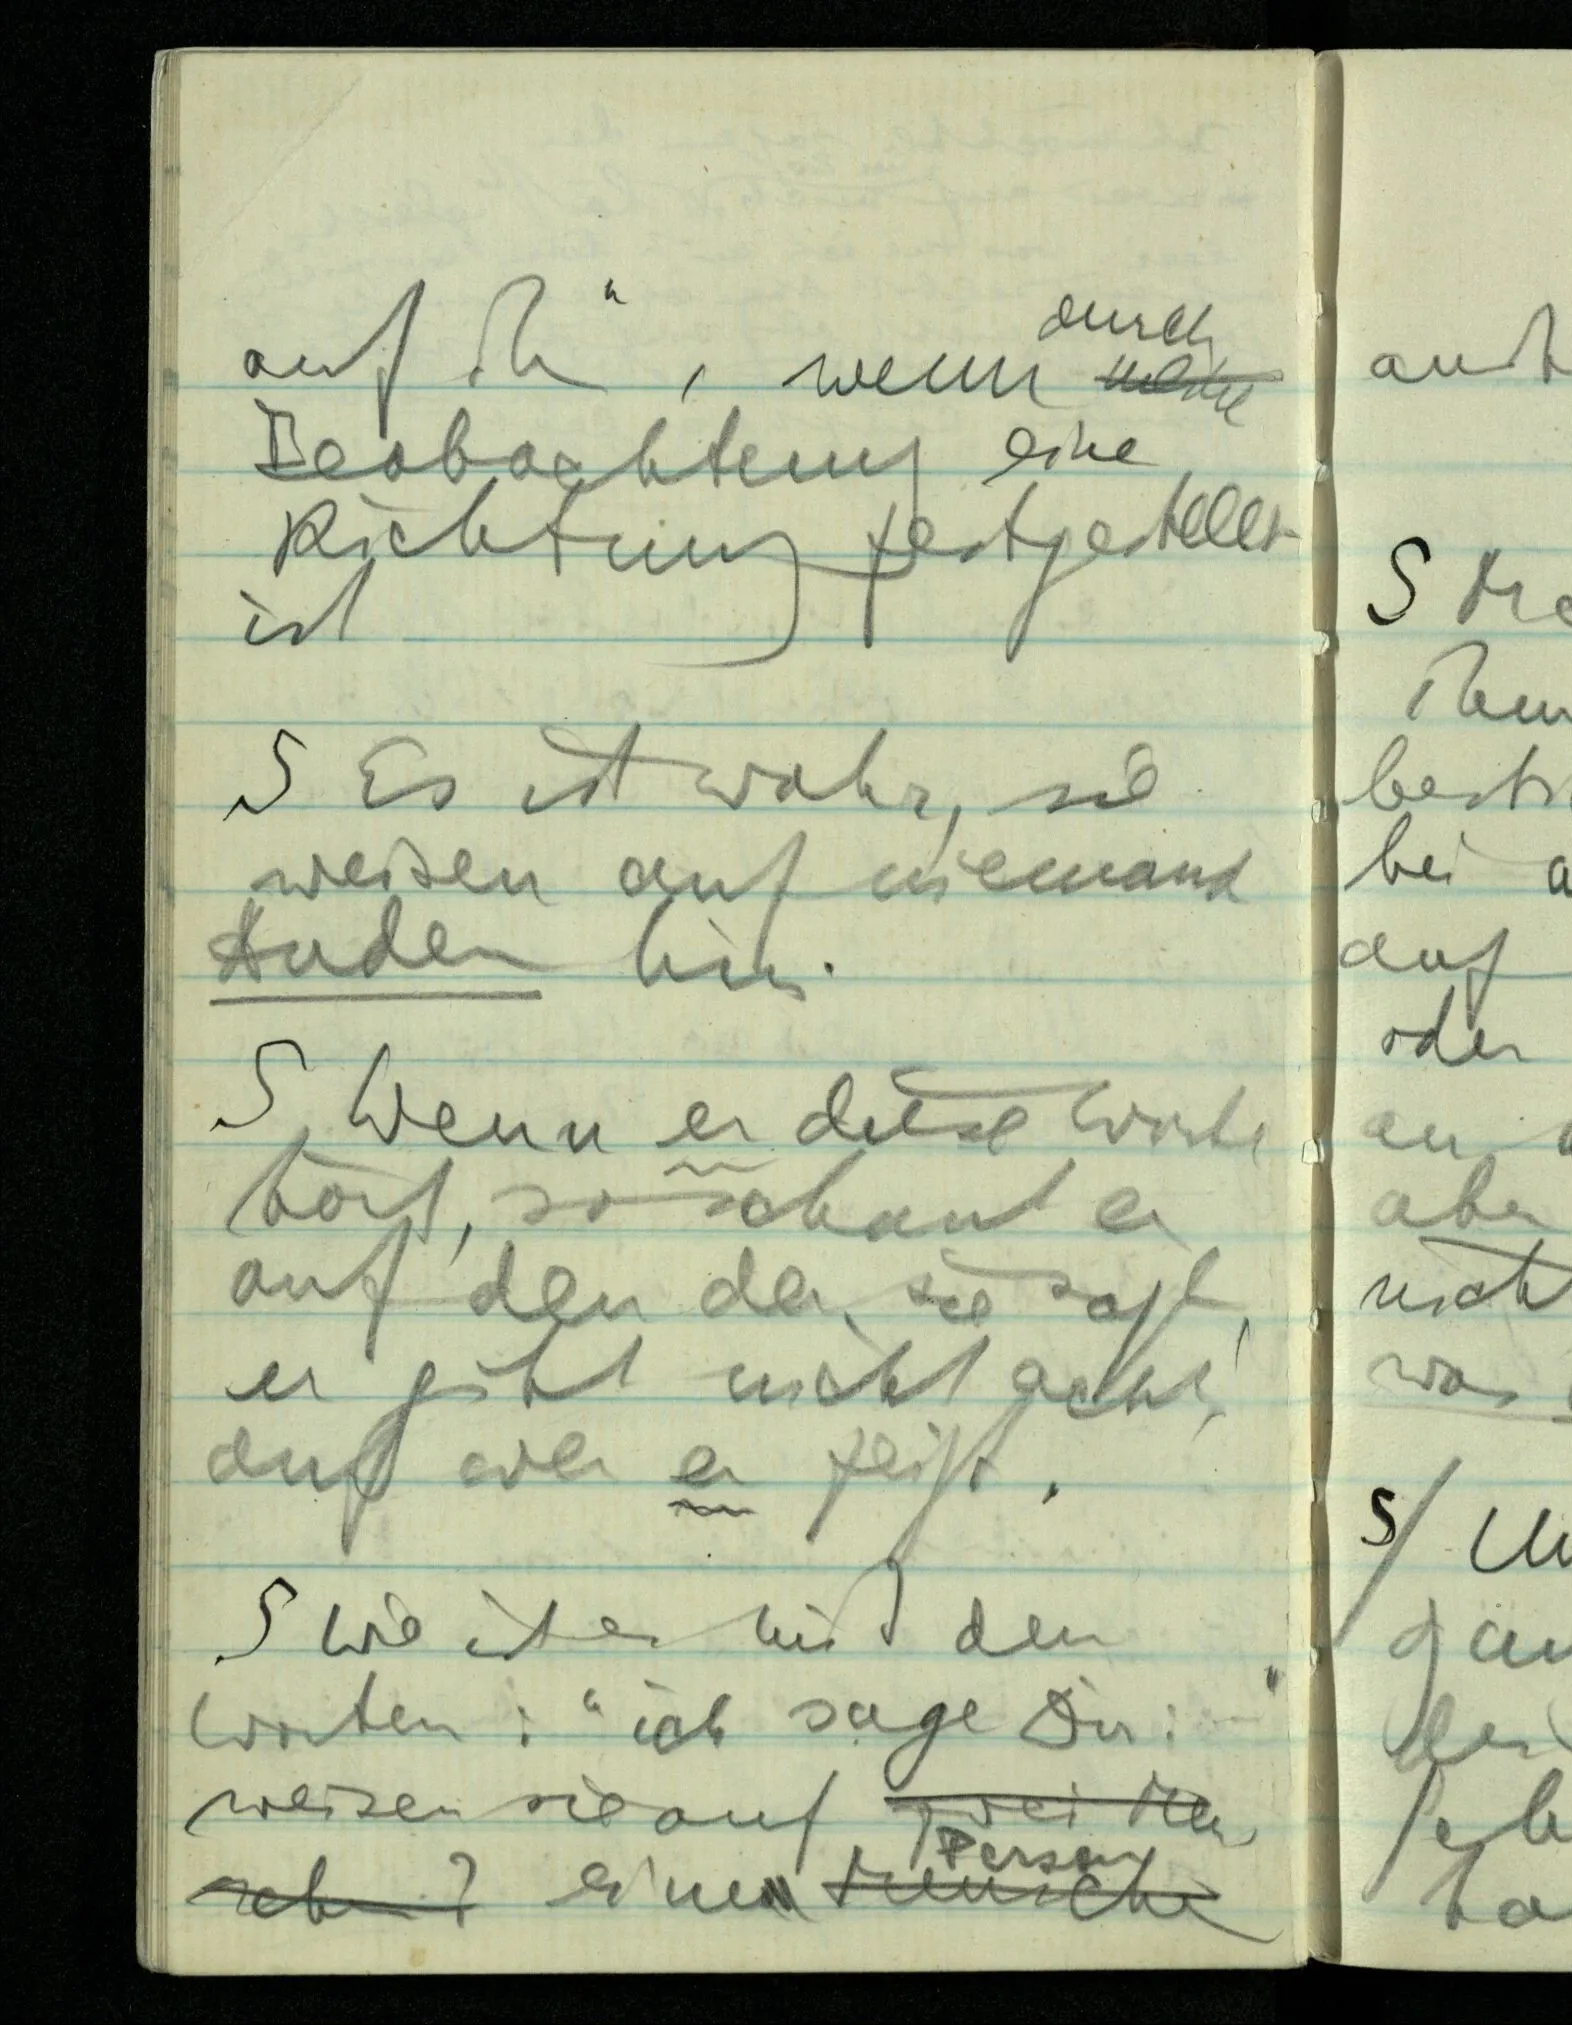 auf Dich", wenn durch
Beobachtung eine
Richtung festgestellt
ist
S Es ist wahr, sie
weisen auf niemand
Andern hin.
S Wenn er diese Worte
hört, so schaut er
auf den der sie sagt,
er gibt nicht acht,
auf wen er zeigt.
S Wie ist es mit den
Worten: "ich sage Dir:"
weisen sie auf zwei Men
schen? einen Person Mensche
aut
S
best
bei a
auf
oder
an
aber
nicht
was
S/